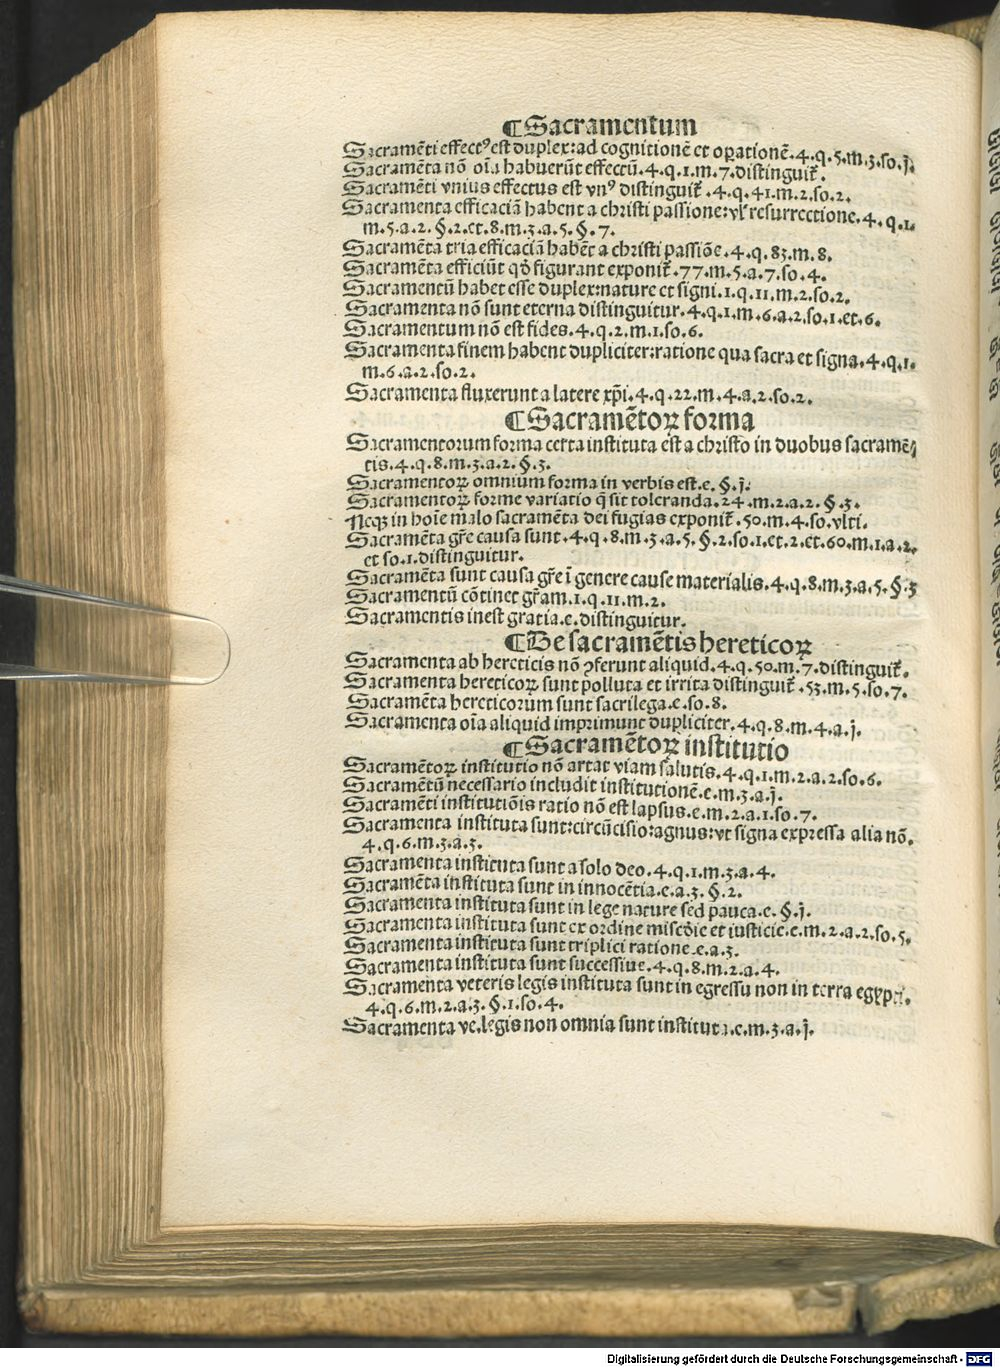 ¶Sacramentum
Sacramēti effectꝰ est duplex:ad cognitionē et oꝑationē.4.q.5.m.3.so.j.
Sacramēta nō oīa habuerūt effectū.4.q.1.m.7.distinguit᷑.
Sacramēti vnius effectus est vnꝰ distinguit᷑.4.q.41.m.2.so.2.
Sacramenta efficaciā habent a christi passione:vl᷑ resurrectione.4.q.1.
m.5.a.2.§.2.et.8.m.3.a.5.§.7.
Sacramēta tria efficaciā habēt a christi passiōe.4.q.83.m.8.
Sacramēta efficiūt qd̄ figurant exponit᷑.77.m.5.a.7.so.4.
Sacramentū habet esse duplex:nature et signi.1.q.11.m.2.so.2.
Sacramenta nō sunt eterna distinguitur.4.q.1.m.6.a.2.so.1.et.6.
Sacramentum nō est fides.4.q.2.m.1.so.6.
Sacramenta finem habent dupliciter:ratione qua sacra et signa.4.q.1.
m.6.a.2.so.2.
Sacramenta fluxerunt a latere xp̄i.4.q.22.m.4.a.2.so.2.
¶Sacramētoꝝ forma
Sacramentorum forma certa instituta est a christo in duobus sacramē⸗
tis.4.q.8.m.3.a.2.§.3.
Sacramentoꝝ omnium forma in verbis est.e.§.j.
Sacramentoꝝ forme variatio q̄ sit toleranda.24.m.2.a.2.§.3.
Neqꝫ in hoīe malo sacramēta dei fugias exponit᷑.50.m.4.so.vlti.
Sacramēta gr̄e causa sunt.4.q.8.m.3.a.5.§.2.so.1.et.2.et.60.m.1.a.2.
et so.1.distinguitur.
Sacramēta sunt causa gr̄e ī genere cause materialis.4.q.8.m.3.a.5.§.3
Sacramentū cōtinet gr̄am.1.q.11.m.2.
Sacramentis inest gratia.e.distinguitur.
¶De sacramētis hereticoꝝ
Sacramenta ab hereticis nō ꝯferunt aliquid.4.q.50.m.7.distinguit᷑.
Sacramenta hereticoꝝ sunt polluta et irrita distinguit᷑.53.m.5.so.7.
Sacramēta hereticorum sunt sacrilega.e.so.8.
Sacramenta oīa aliquid imprimunt dupliciter.4.q.8.m.4.a.j.
¶Sacramētoꝝ institutio
Sacramētoꝝ institutio nō artat viam salutis.4.q.1.m.2.a.2.so.6.
Sacramētū necessario includit institutionē.e.m.3.a.j.
Sacramēti institutiōis ratio nō est lapsus.e.m.2.a.1.so.7.
Sacramenta instituta sunt:circūcisio:agnus:vt signa expressa alia nō.
4.q.6.m.3.a.3.
Sacramenta instituta sunt a solo deo.4.q.1.m.3.a.4.
Sacramēta instituta sunt in innocētia.e.a.3.§.2.
Sacramenta instituta sunt in lege nature sed pauca.e.§.j.
Sacramenta instituta sunt ex ordine miscd̄ie et iusticie.e.m.2.a.2.so.5.
Sacramenta instituta sunt triplici ratione.e.a.3.
Sacramenta instituta sunt successiue.4.q.8.m.2.a.4.
Sacramenta veteris legis instituta sunt in egressu non in terra egypti.
4.q.6.m.2.a.3.§.1.so.4.
Sacramenta ve.legis non omnia sunt instituta.e.m.3.a.j.
Digitalisierung gefördert durch die Deutsche Forschungsgemeinschaft - DFG